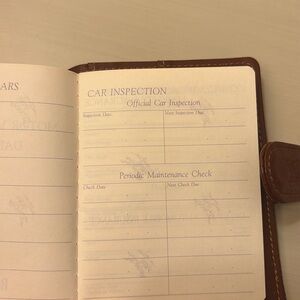 ARS
CAR INSPECTION
Official Car Inspection
Inspection Date
Next Inspection Due
Periodic Maintenance Check
Check Date
Next Check Due